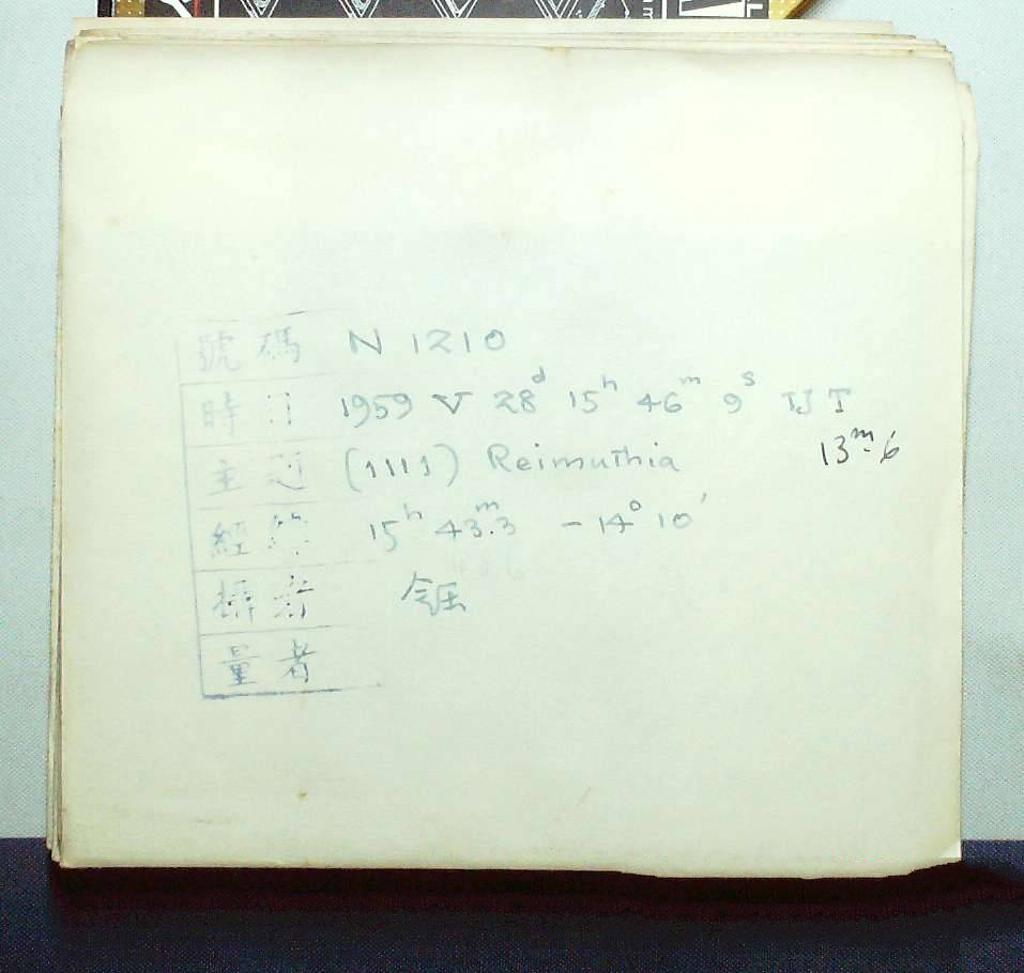 號碼 N 1210
時 1959 V 28ᵈ 15ʰ 46ᵐ 9ˢ UT
13ᵐ.6
主 (1111) Reimuthia
經緯 15ʰ 43ᵐ.3 -14° 10'
攝者
量者